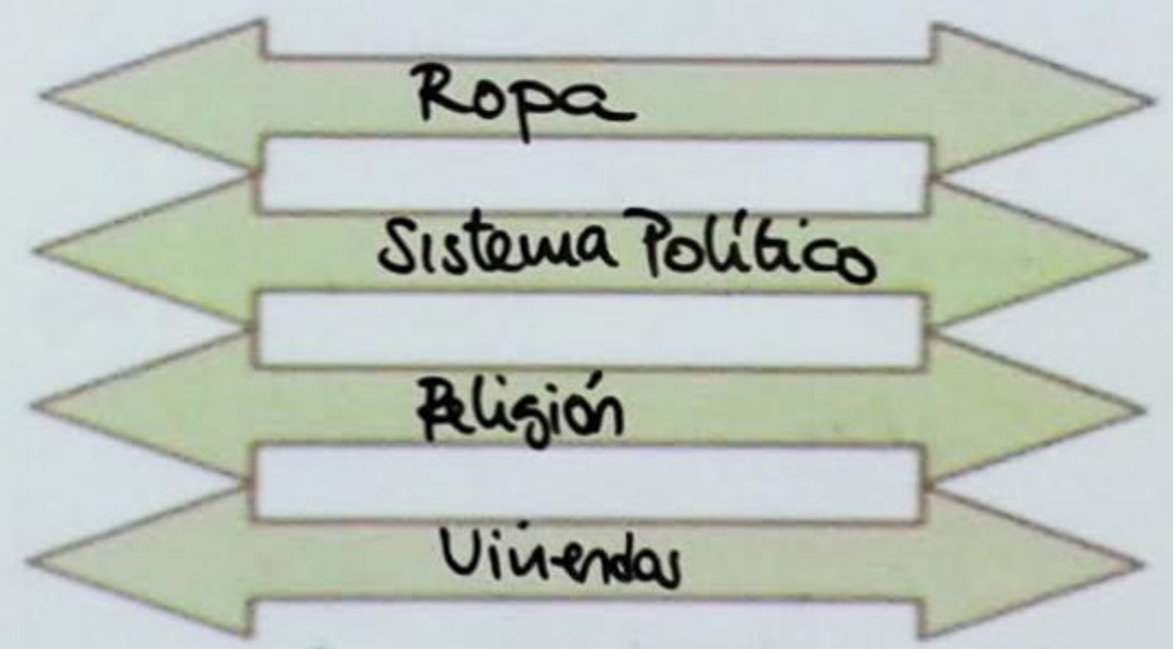 Ropa
Sistema Político
Religión
Viviendas